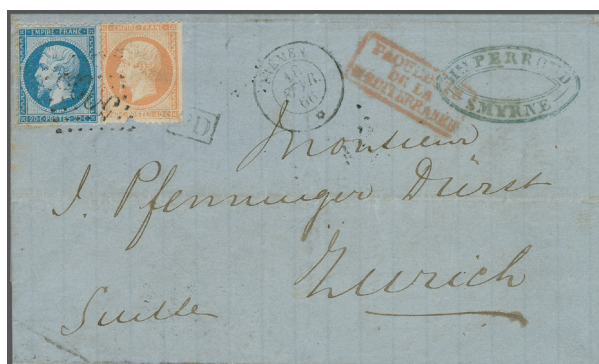 EMPIRE FRANC EMPIRE FRANC
20 C POSTES 20 C 40 C POSTES 40 C
5098
PD
SMYRNE
FEVR.
66
PAQUEBOTS
DE LA
MÉDITERRANÉE
PERROUD
SMYRNE
Monsieur
J. Pfenninger Dürst
Zurich
Suisse